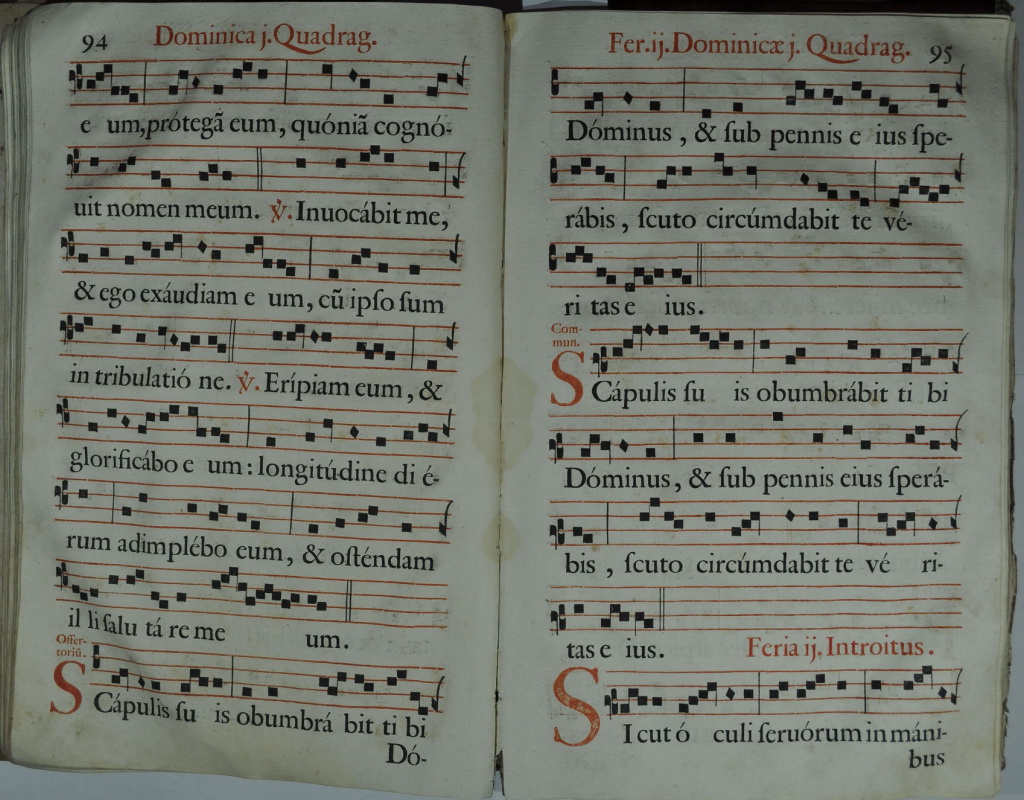 94 Dominica j. Quadrag.
e um, prótegã eum, quóniã cognó-
uit nomen meum. ℣. Inuocábit me,
& ego exáudiam e um, cũ ipſo ſum
in tribulatió ne. ℣. Erípiam eum, &
glorificábo e um : longitúdine di é-
rum adimplébo eum, & oſténdam
il li ſalu tá re me um.
Offer-
toriũ.
SCápulis ſu is obumbrá bit ti bi
Dó-
Fer. ij. Dominicæ j. Quadrag. 95
Dóminus , & ſub pennis e ius ſpe-
rábis , ſcuto circúmdabit te vé-
ri tas e ius.
Com-
mun.
SCápulis ſu is obumbrábit ti bi
Dóminus, & ſub pennis eius ſperá-
bis , ſcuto circúmdabit te vé ri-
tas e ius. Feria ij. Introitus.
SIcut ó culi ſeruórum in máni-
bus